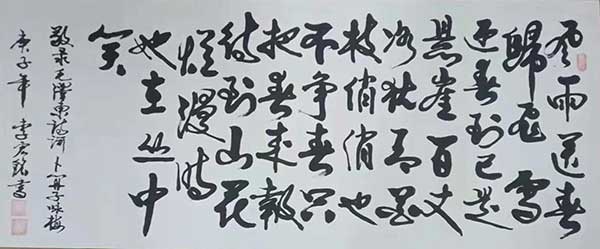 風雨送春
歸飛雪
迎春到已是
悬崖百丈
冰犹有花
枝俏俏也
不争春只
把春来報
待到山花
烂漫时
她在丛中
笑
敬录毛泽东诗词 卜算子咏梅
庚子年 李 书